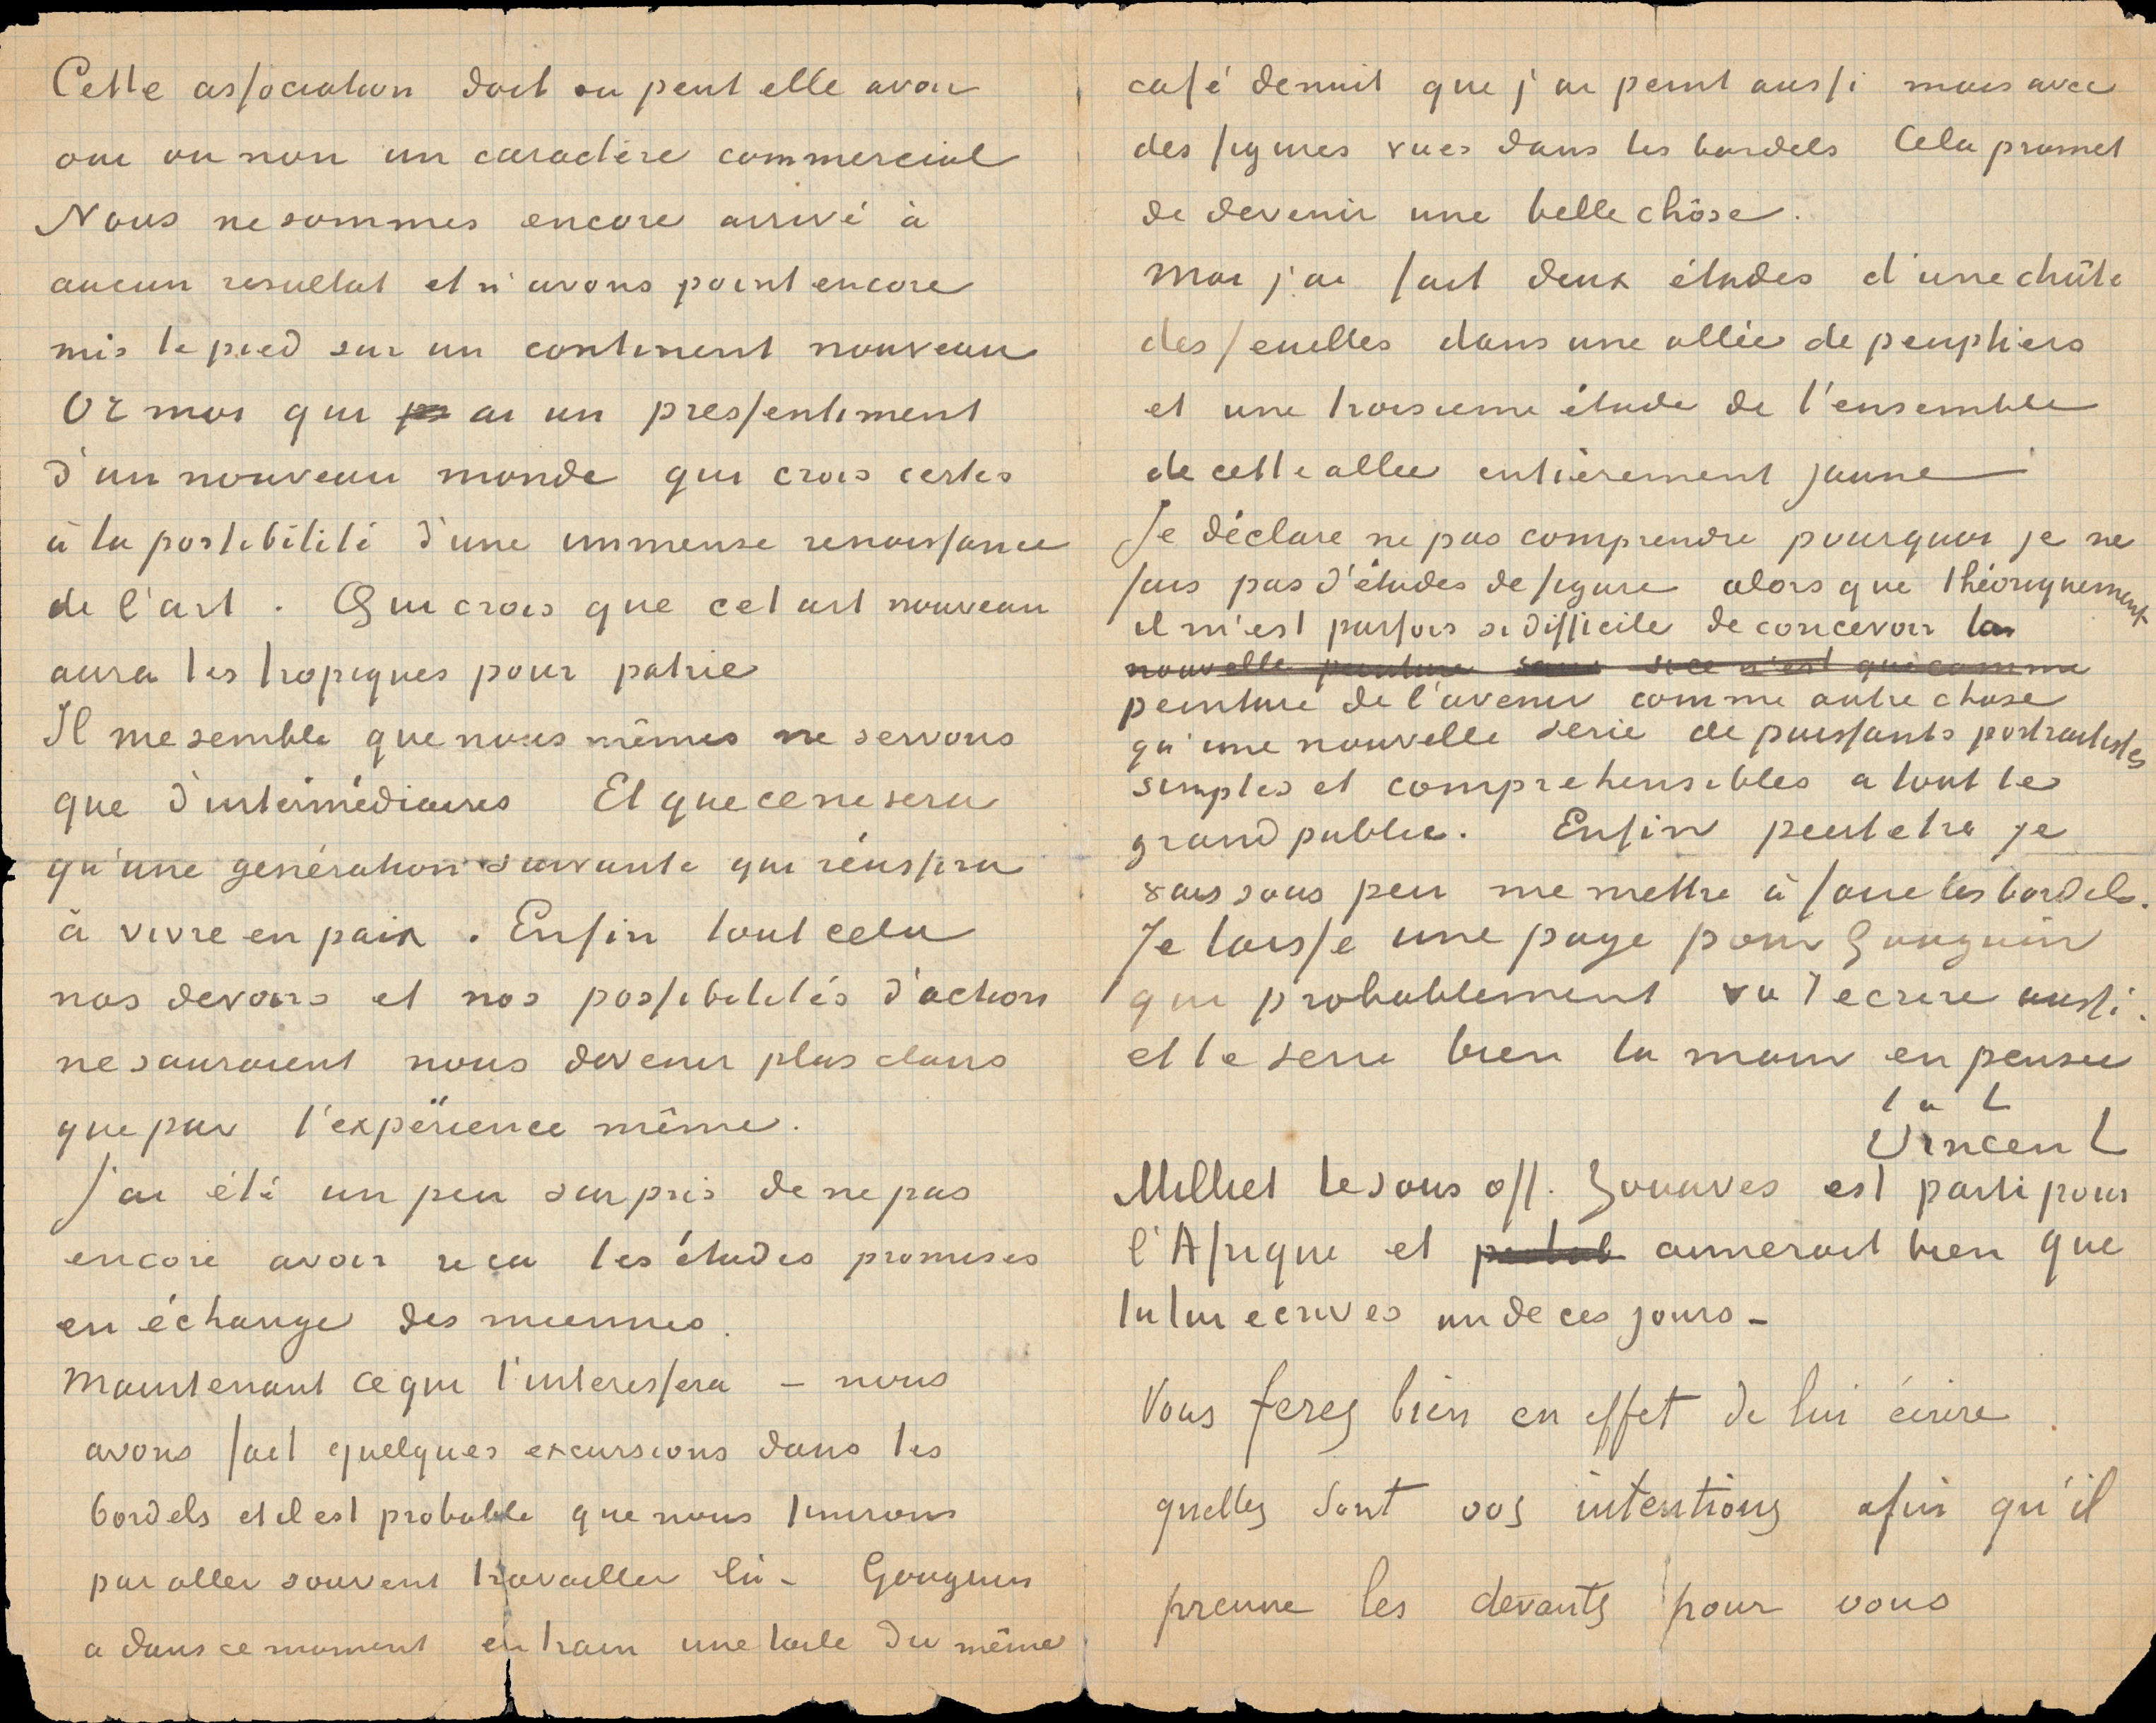 Cette association doit ou peut elle avoir
oui ou non un caractère commercial
Nous ne sommes encore arrivé à
aucun resultat et n'avons point encore
mis le pied sur un continent nouveau
Or moi qui ai un pressentiment
d'un nouveau monde qui crois certes
à la possibilité d'une immense renaissance
de l'art . Qui crois que cet art nouveau
aura les tropiques pour patrie
Il me semble que nous mêmes ne servons
que d'intermédiaires Et que ce ne sera
qu'une génération suivante qui réussira
à vivre en paix . Enfin tout cela
nos devoirs et nos possibilités d'action
ne sauraient nous devenir plus clairs
que par l'expérience même.
J'ai été un peu surpris de ne pas
encore avoir reçu les études promises
en échange des miennes.
Maintenant ce qui t'interessera – nous
avons fait quelques excursions dans les
bordels et il est probable que nous finirons
par aller souvent travailler là – Gauguin
a dans ce moment en train une toile du même
café de nuit que j'ai peint aussi mais avec
des figures vues dans les bordels Cela promet
de devenir une belle chôse.
Moi j'ai fait deux études d'une chûte
des feuilles dans une allée de peupliers
et une troisieme étude de l'ensemble
de cette allee entièrement jaune –
Je déclare ne pas comprendre pourquoi je ne
fais pas d'études de figure alors que théoriquement
il m'est parfois si difficile de concevoir la
nouvelle peinture sans si ce n'est que comme
peinture de l'avenir comme autre chose
qu'une nouvelle serie de puissants portraitistes
simples et comprehensibles a tout le
grand public. Enfin peut etre je
vais sous peu me mettre à faire les bordels.
Je laisse une page pour Gauguin
qui probablement va t'ecrire aussi.
et te serre bien la main en pensée
t. à t.
Vincent
Milliet le sous off. Zouaves est parti pour
l'Afrique et aimerait bien que
tu lui ecrives un de ces jours –
Vous ferez bien en effet de lui écrire
quelles sont vos intentions afin qu'il
prenne les devants pour vous